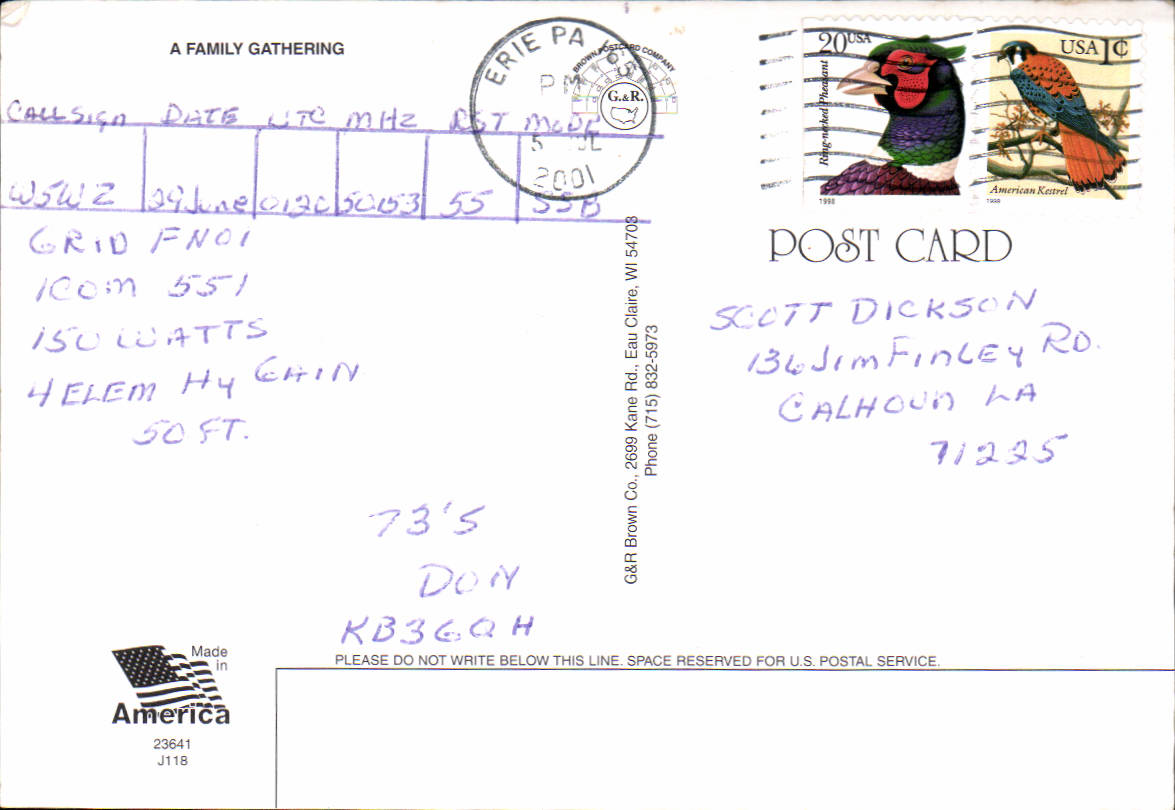 A FAMILY GATHERING
CALLSign DATE UTC MHZ RST MODE
W5WZ 29 June 0120 50153 55 SSB
GRID FN01
ICOM 551
150 WATTS
4 ELEM Hy GAIN
50 FT.
73'S
DON
KB3GQH
Made
in
America
23641
J118
ERIE PA
PM
5 JL
2001
BROWN POSTCARD COMPANY
G.&R.
G&R Brown Co., 2699 Kane Rd., Eau Claire, WI 54703
Phone (715) 832-5973
20USA
Ring-necked Pheasant
1998
USA 1¢
American Kestrel
1998
POST CARD
SCOTT DICKSON
136 Jim FinLEY RD.
CALHOUn LA
71225
PLEASE DO NOT WRITE BELOW THIS LINE. SPACE RESERVED FOR U.S. POSTAL SERVICE.